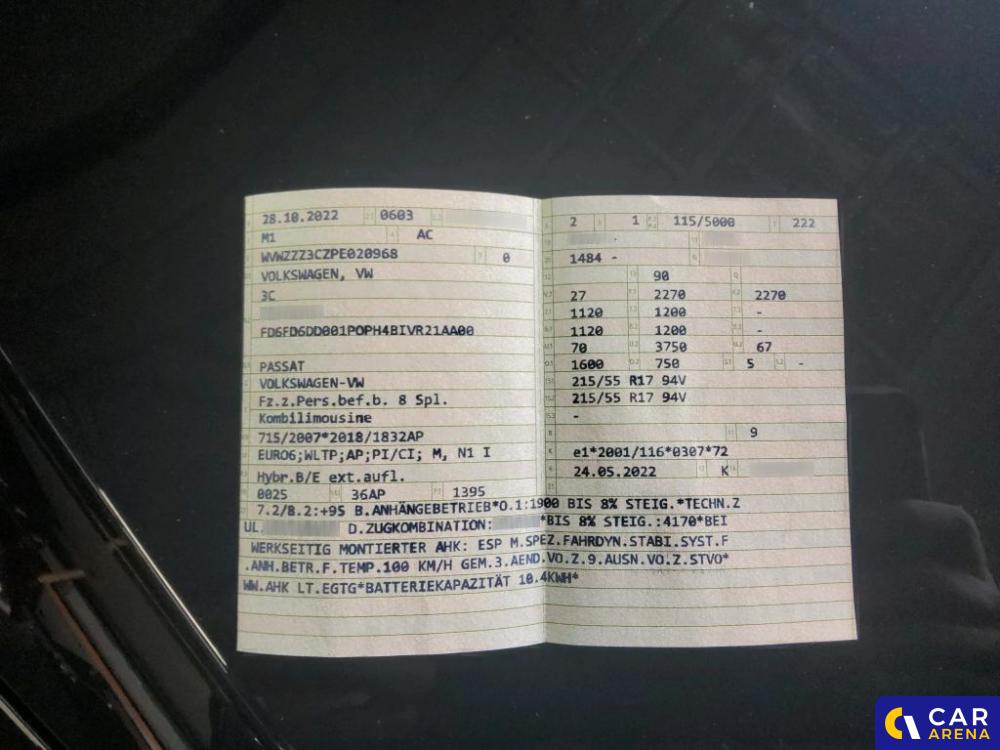 28.10.2022 0603
M1 AC
WVWZZZ3CZPE020968 0
VOLKSWAGEN, VW
3C
FD6FD6DD001POPH4BIVR21AA00
PASSAT
VOLKSWAGEN-VW
Fz.z.Pers.bef.b. 8 Spl.
Kombilimousine
715/2007*2018/1832AP
EURO6;WLTP;AP;PI/CI; M, N1 I
Hybr.B/E ext.aufl.
0025 36AP 1395
2 1 115/5000 222
1484 -
90
27 2270 2270
1120 1200 -
1120 1200 -
70 3750 67
1600 750 5 -
215/55 R17 94V
215/55 R17 94V
-
9
e1*2001/116*0307*72
24.05.2022 K
7.2/8.2:+95 B.ANHÄNGEBETRIEB*O.1:1900 BIS 8% STEIG.*TECHN.Z
UL. D.ZUGKOMBINATION: *BIS 8% STEIG.:4170*BEI
WERKSEITIG MONTIERTER AHK: ESP M.SPEZ.FAHRDYN.STABI.SYST.F
.ANH.BETR.F.TEMP.100 KM/H GEM.3.AEND.VO.Z.9.AUSN.VO.Z.STVO*
WW.AHK LT.EGTG*BATTERIEKAPAZITÄT 10.4KWH*
CAR
ARENA